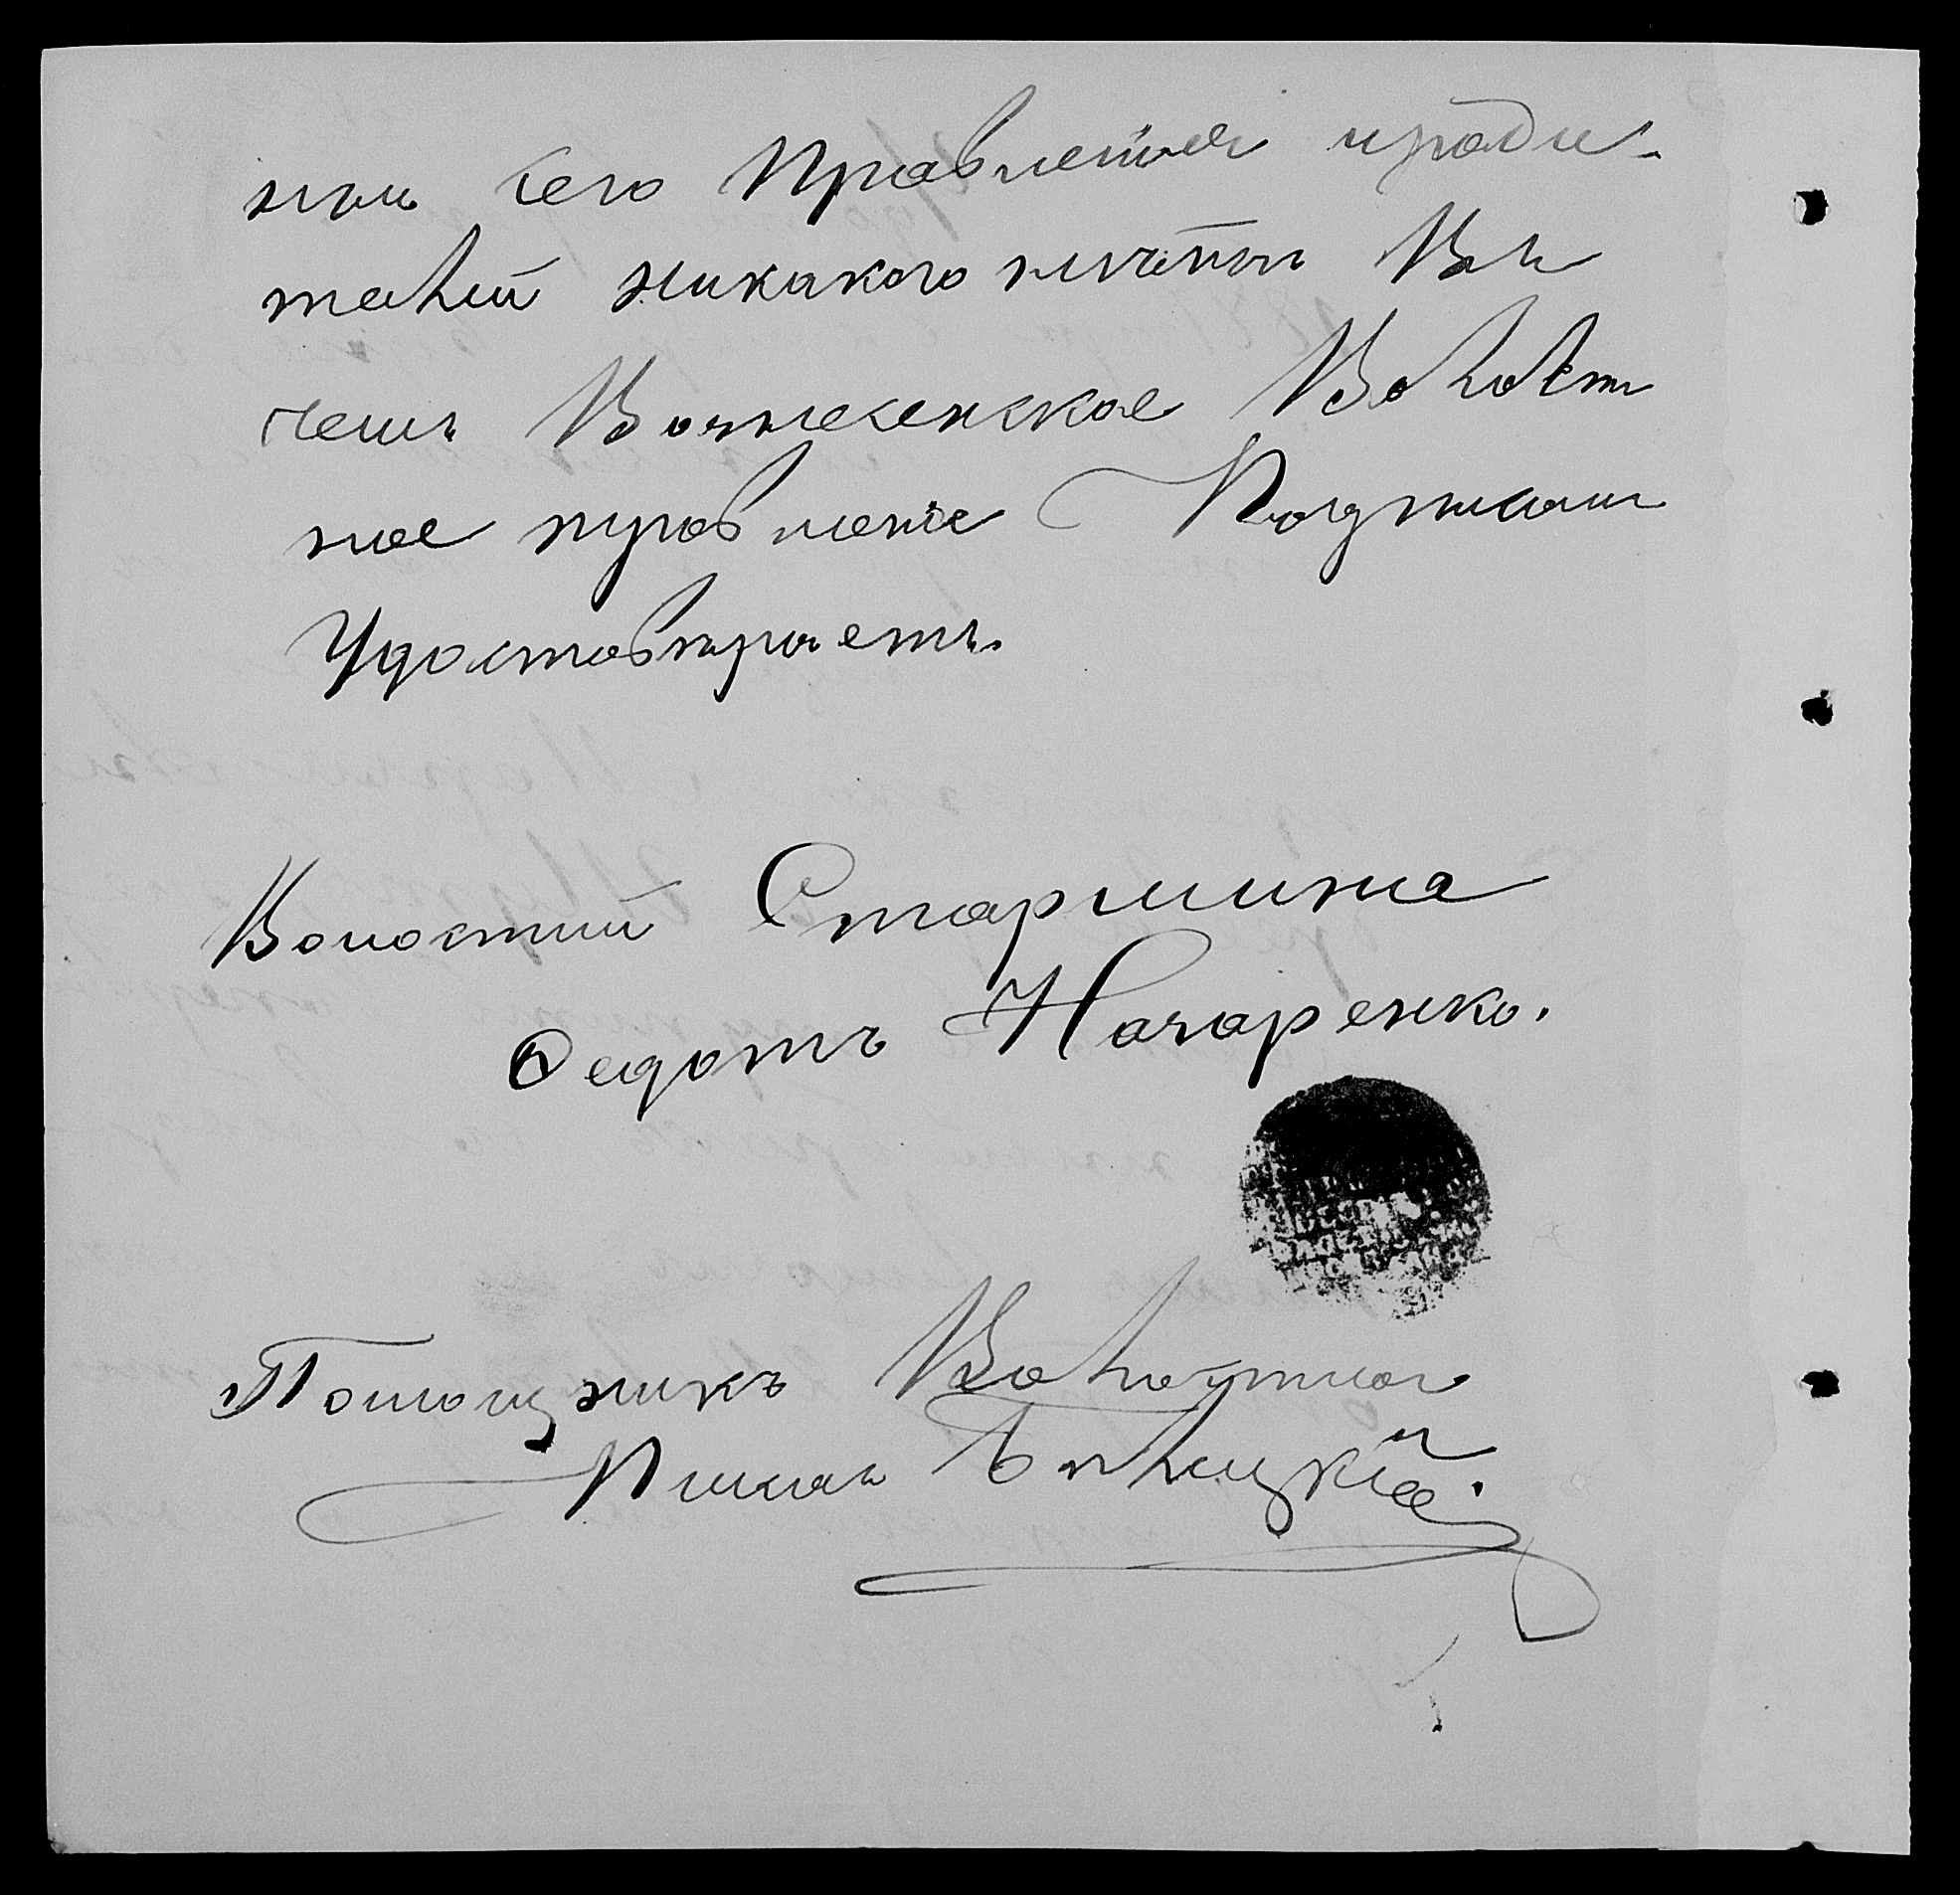 ны сего Правленія и роди-
телей никакого нѣтъ Въ
чемъ Вознесенское Волост
ное правленіе Подписомъ
Удостовѣряетъ.
Волостний Старшина
Федотъ Назаренко.
Помощникъ Волостного
Писаря Бѣлицкій.